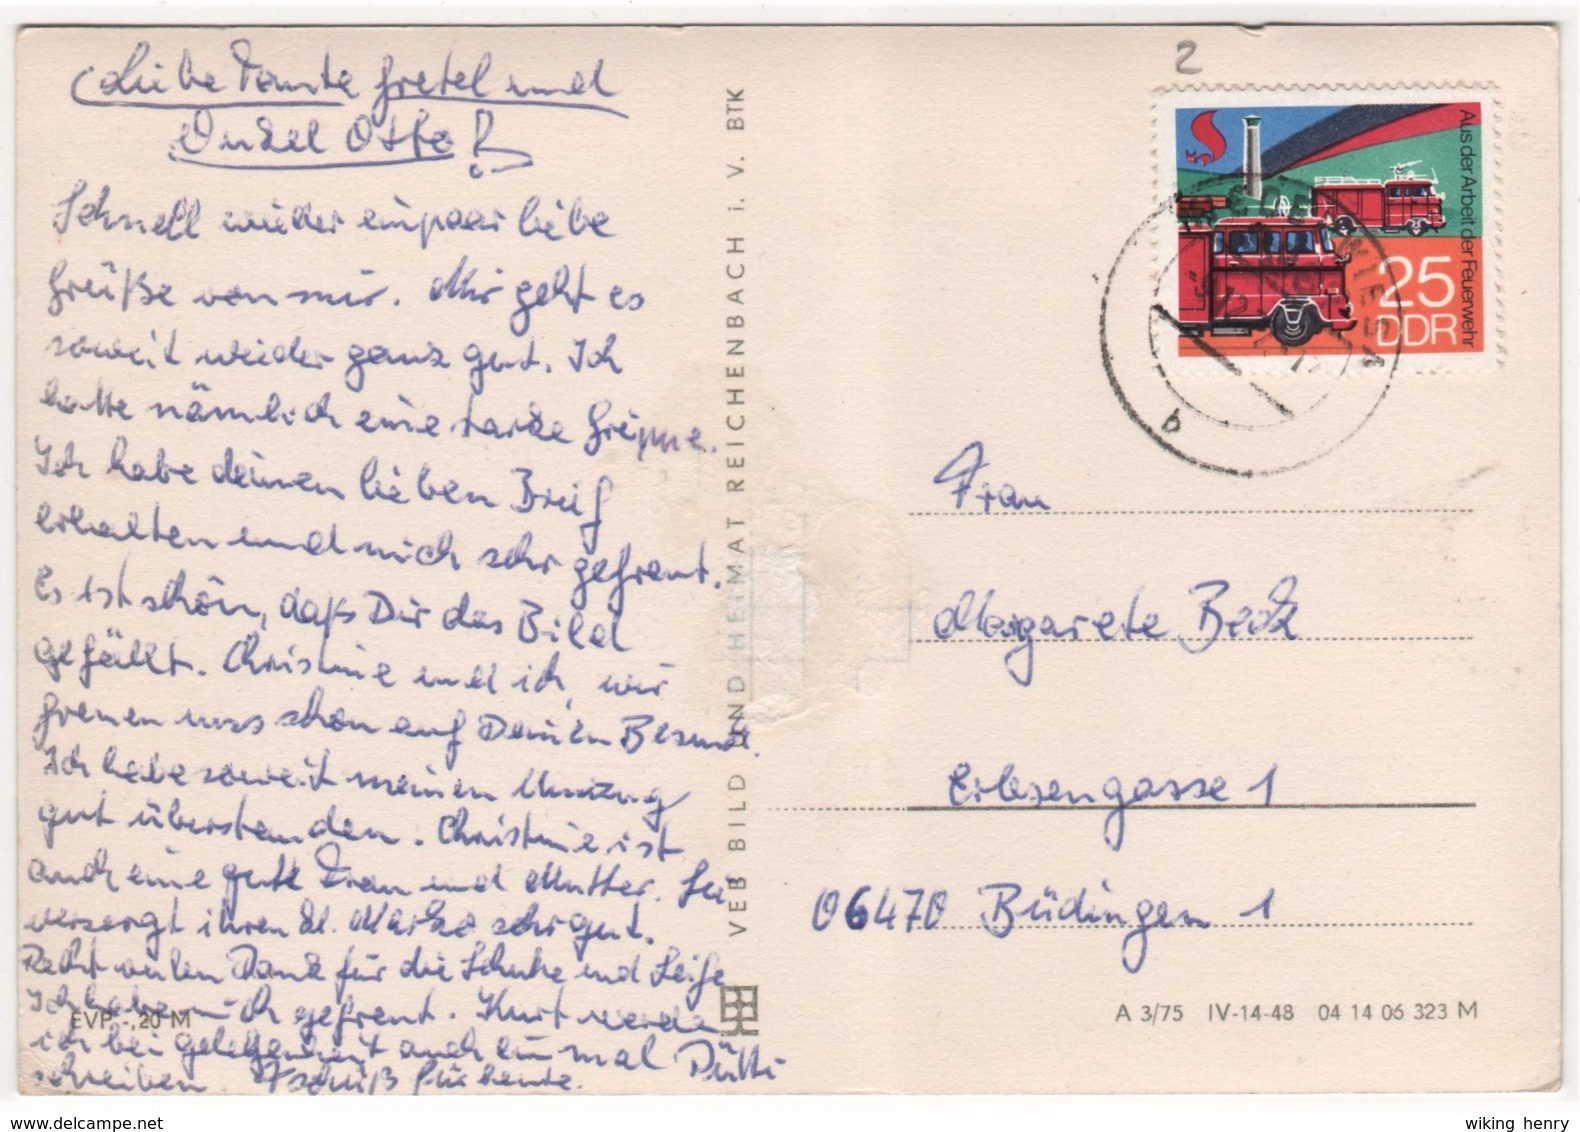 Liebe Tante Gretel und
Onkel Otto!
Schnell wieder ein paar liebe
Grüße von mir. Mir geht es
soweit wieder ganz gut. Ich
hatte nämlich eine starke Grippe.
Ich habe deinen lieben Breif
erhalten und mich sehr gefreut.
Es ist schön, daß Dir das Bild
gefällt. Christine und ich, wir
freuen uns schon auf Deinen Besuch.
Ich habe soweit meinen Umzug
gut überstanden. Christine ist
auch eine gute Frau und Mutter. Sei
versorgt ihren kl. Marko sehr gut.
Recht vielen Dank für die Schuhe und Seife
Ich habe mich gefreut. Kurt werde
ich bei Gelegenheit auch ein mal
schreiben. Tschüß für heute.
EVP -,20 M
VEB BILD UND HEIMAT REICHENBACH i. V. BTK
2
Aus der Arbeit der Feuerwehr
25
DDR
WIESA
b
Frau
Margarete Beck
Erbsengasse 1
06470 Büdingen 1
A 3/75 IV-14-48 04 14 06 323 M
wiking henry